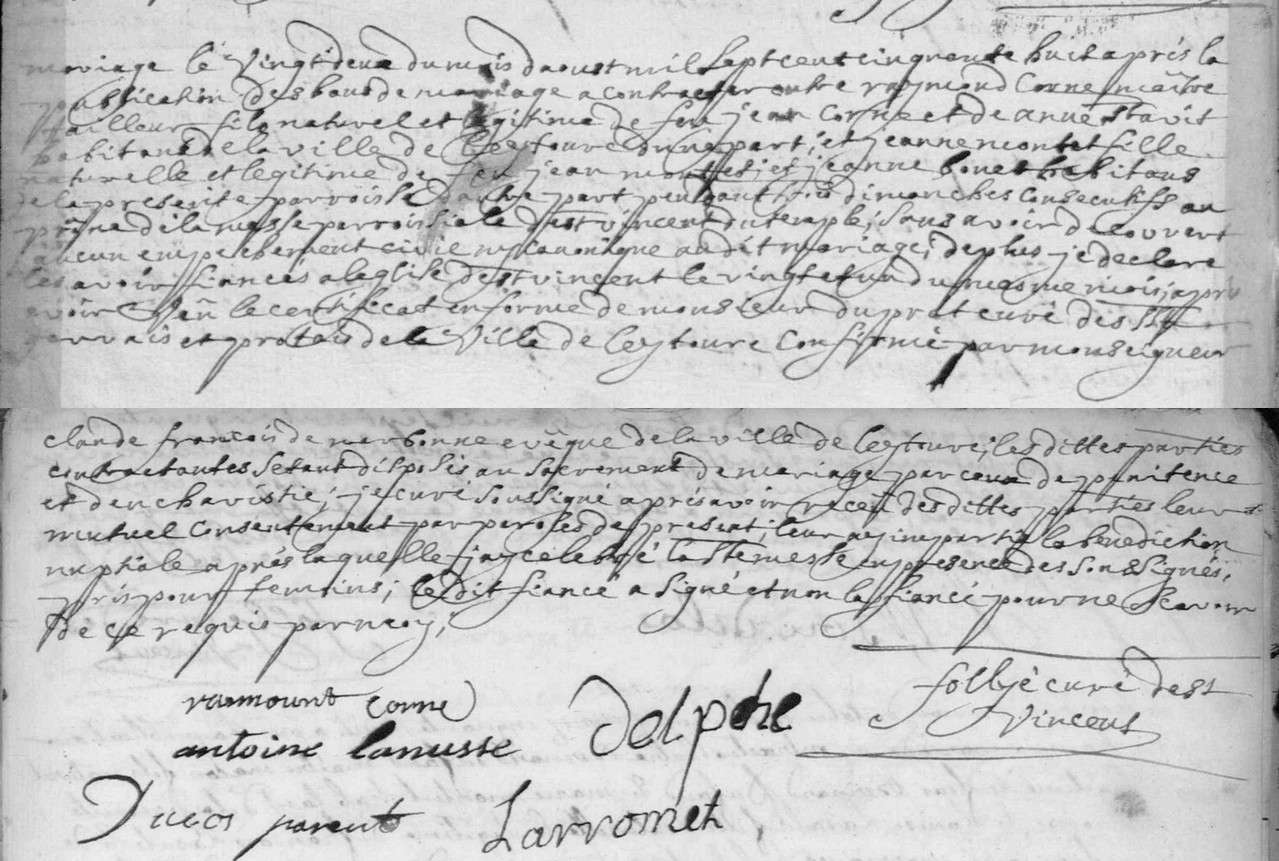 mariage le Vingt deux du mois daoust mil sept cent cinquente huit aprés la
publication des bans de mariage a contracter entre raymond Corne maître
tailleur fils naturel et legitime de feu jean Corne et de anne
habitans de la ville de Leytoure dune part; et jeanne montet fille
naturelle et legitime de feu jean montet et jeanne bonet habitans
de la presente parroisse dautre part pendant trois dimanches consecutifs au
prône de la messe parroissiale de st vincent du temple, sans avoir decouvert
aucun empechement civil ny canonique audit mariage, de plus je declare
les avoir fiancés a leglise de st vincent le vingt et un du mesme mois, apres
avoir veu le certificat en forme de monsieur duprat curé des sts
gervais et protais de la Ville de Leytoure Confirmé par monseigneur
claude francois de narbonne evêque de la ville de leytoure; les dittes parties
contractantes setant disposés au sacrement de mariage par ceux de penitence
et deucharistie; je curé soussigné aprés avoir receu des dittes parties leur
mutuel Consentement par paroles de present, leur ay imparti la benediction
nuptiale aprés laquelle jay celebré la Ste messe en presence des soussignés,
pris pour temoins; le dit fiancé a signé et non la fiancé pour ne scavoir
de ce requis par moy,
raimount corne
antoine lanusse
Delpech
follyé curé de st
Vincent
Ducos parent
Larromet